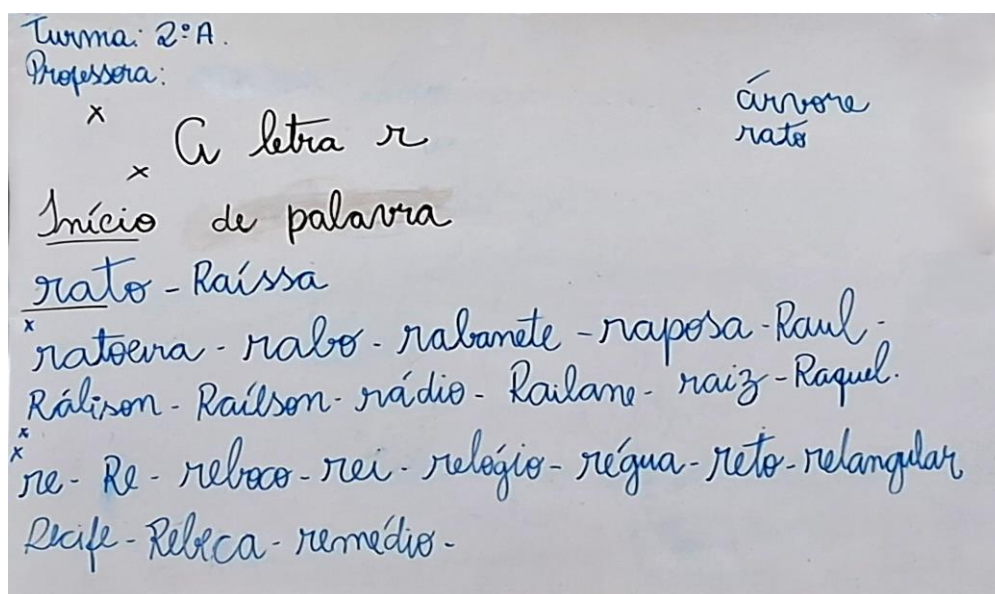 Turma: 2º A.
Professora:
árvore
rato
x
A letra r
x
Início de palavra
rato - Raíssa
x
ratoeira - rabo - rabanete - raposa - Raul -
Rálison - Raílson - rádio - Railane - raiz - Raquel.
x
x
re - Re - reboco - rei - relógio - régua - reto - retangular
Recife - Rebeca - remédio -